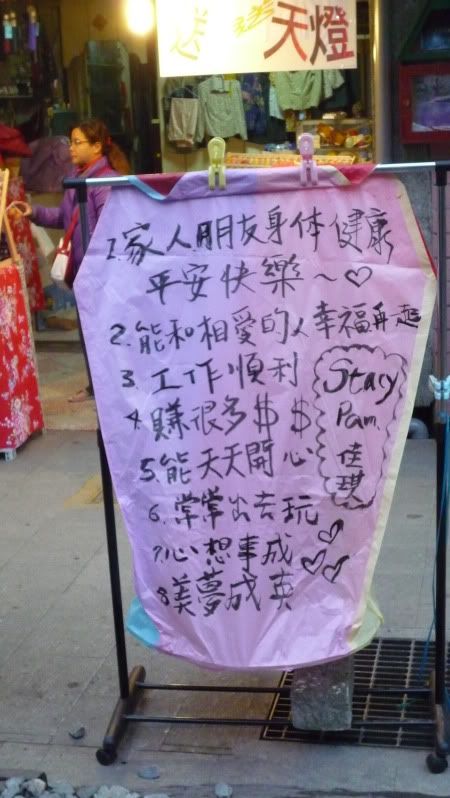 天燈
1.家人朋友身体健康
平安快樂~♡
2.能和相愛的人幸福再一起
3.工作順利
4.賺很多$ $
5.能天天開心
6.常常出去玩
7.心想事成
8.美夢成英
Stacy
Pam.
佳
琪